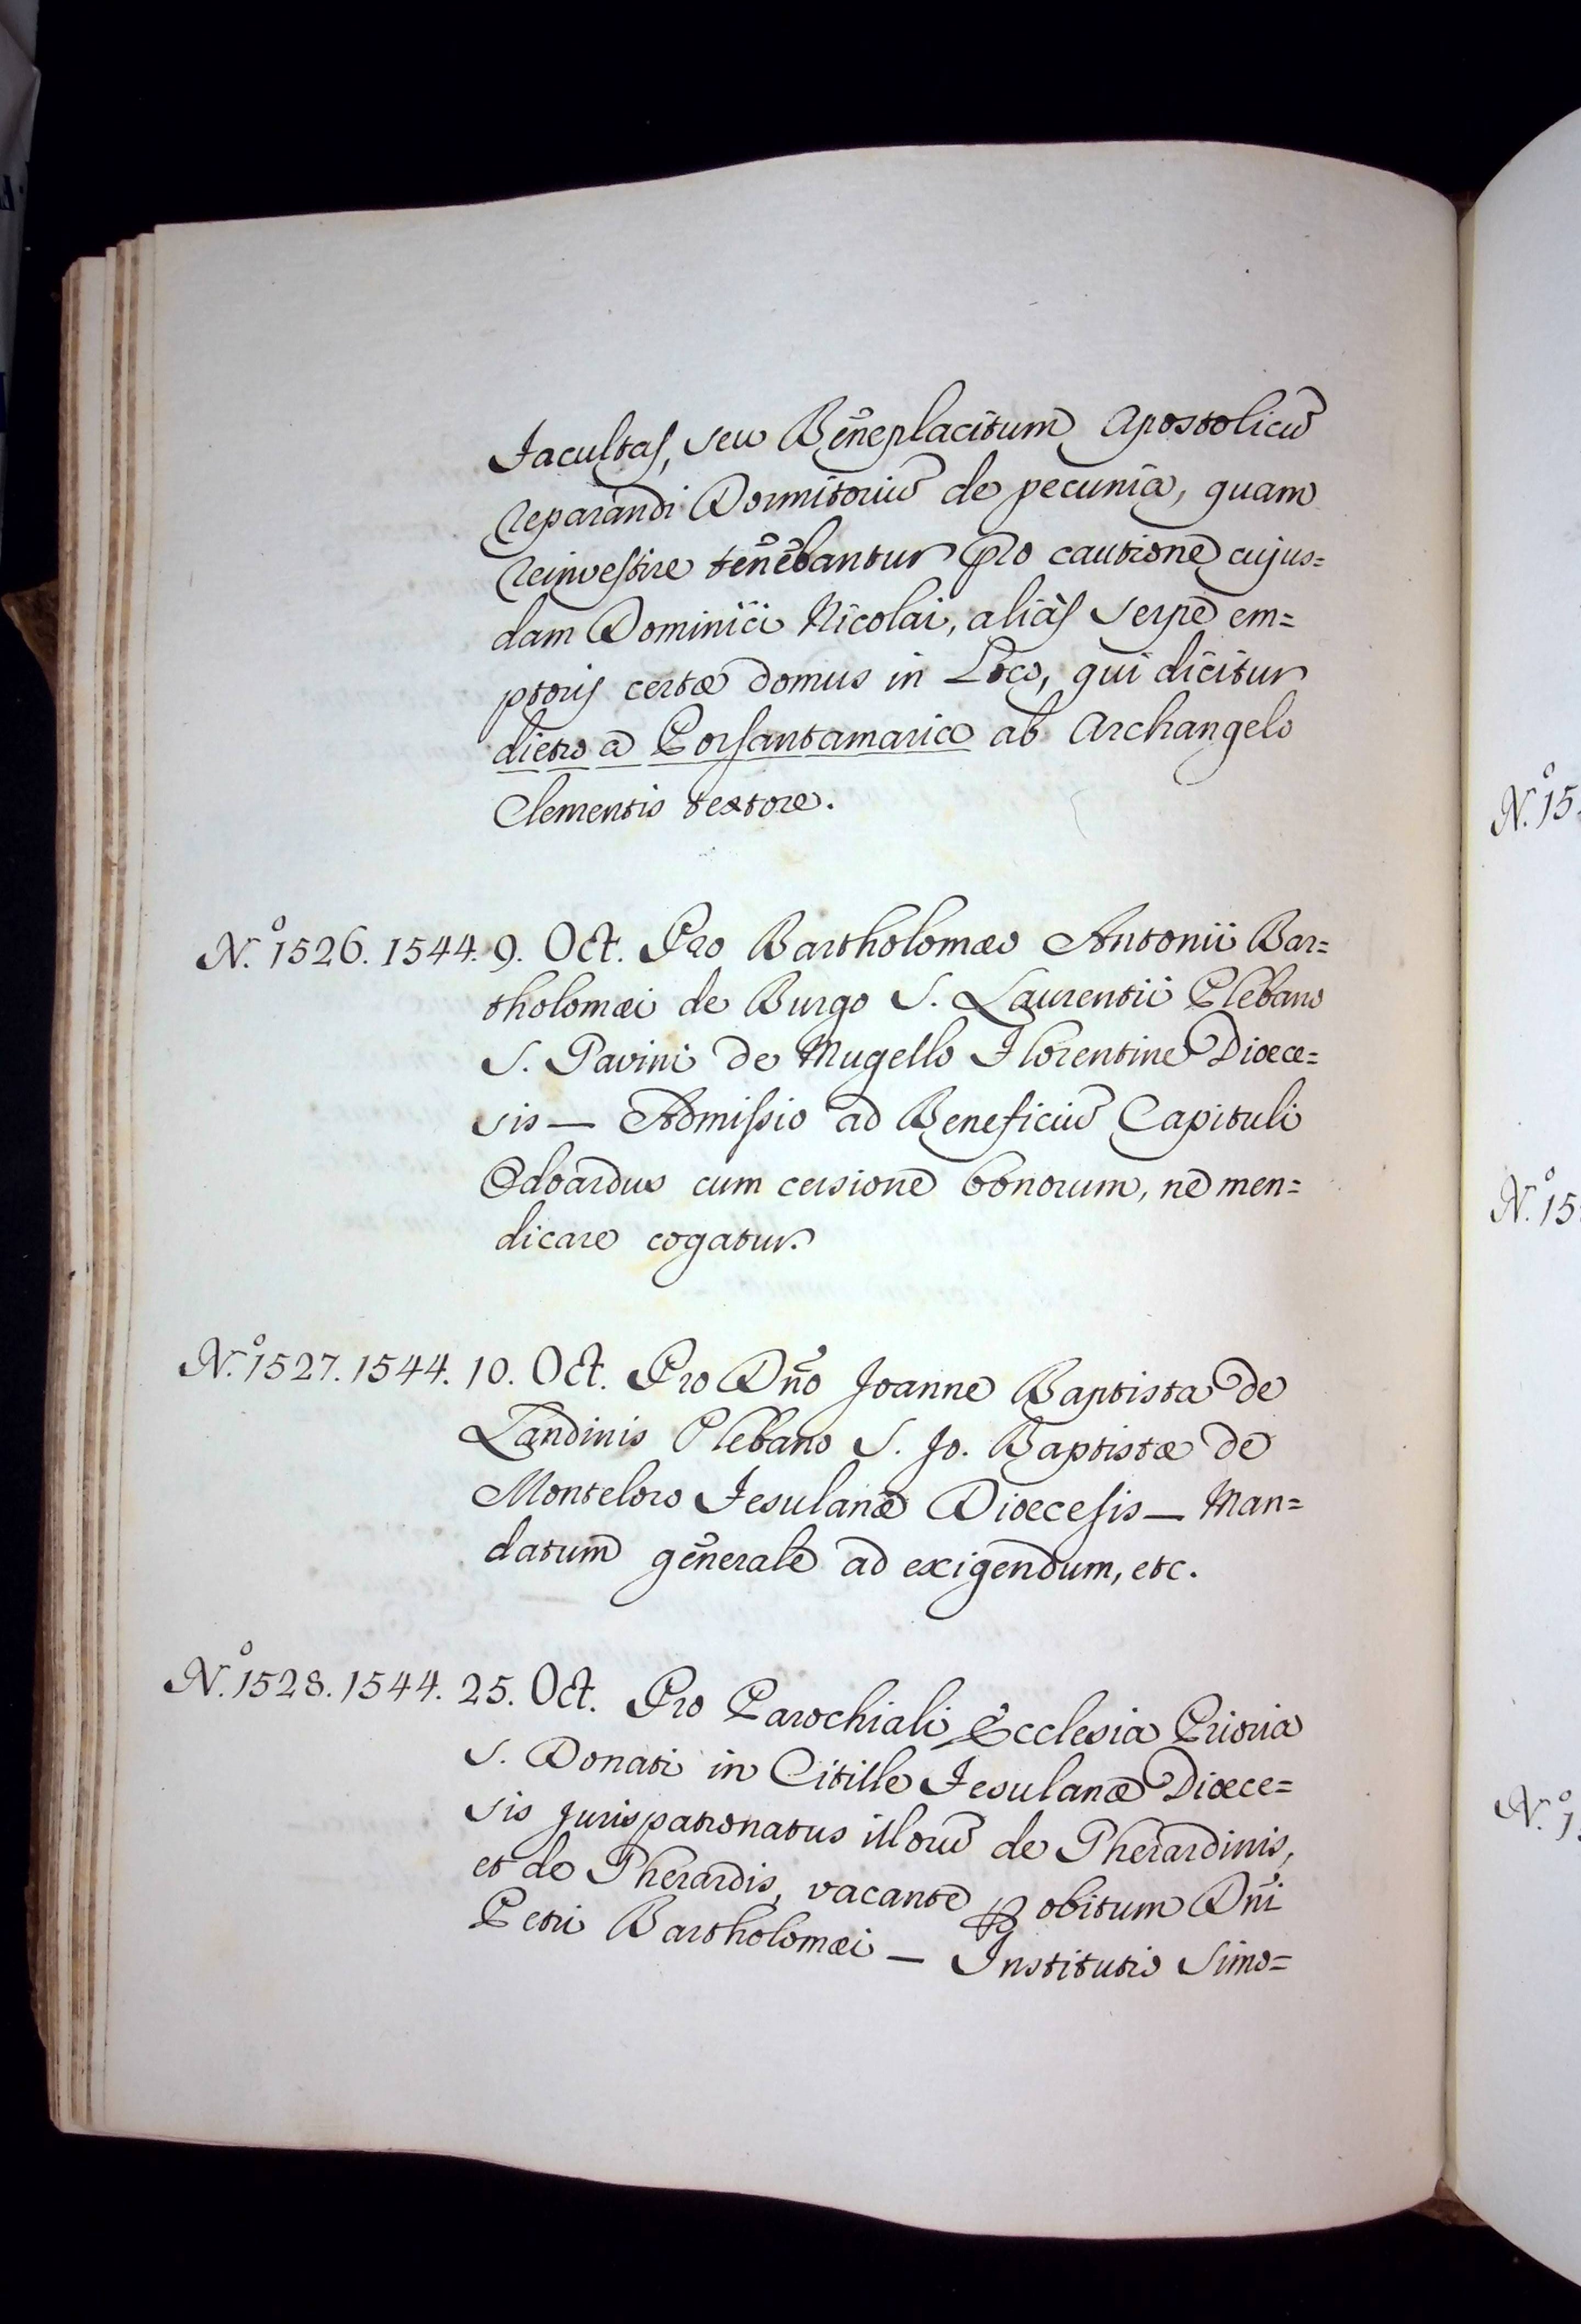 Facultas, seu Beneplacitum Apostolicũ
reparandi Dormitoriũ de pecunia, quam
reinvestire tenebantur pro cautione cujus=
dam Dominici Nicolai, aliàs Serpe em=
ptoris certæ domus in Loco, qui dicitur
dietro a Porsantamaria ab Archangelo
Clementis textore.
N.º 1526. 1544. 9. Oct. Pro Bartholomæo Antonii Bar=
tholomæi de Burgo S. Laurentii Plebano
S. Pavini de Mugello Florentine Diœce=
sis — Admissio ad Beneficiũ Capituli
Odoardus cum cersione bonorum, ne men=
dicare cogatur.
N.º 1527. 1544. 10. Oct. Pro Dño Joanne Baptista de
Landinis Plebano S. Jo. Baptistæ de
Monteloro Fesulanæ Diœcesis — Man=
datum generale ad exigendum, etc.
N.º 1528. 1544. 25. Oct. Pro Parochiali Ecclesia Prioria
S. Donati in Citille Fesulanæ Diœce=
sis Jurispatronatus illorũ de Gherardinis,
et de Gherardis, vacante ꝑ obitum Dñi
Petri Bartholomæi — Institutio Simo=
N.º 15
N.º 15
N.º 1